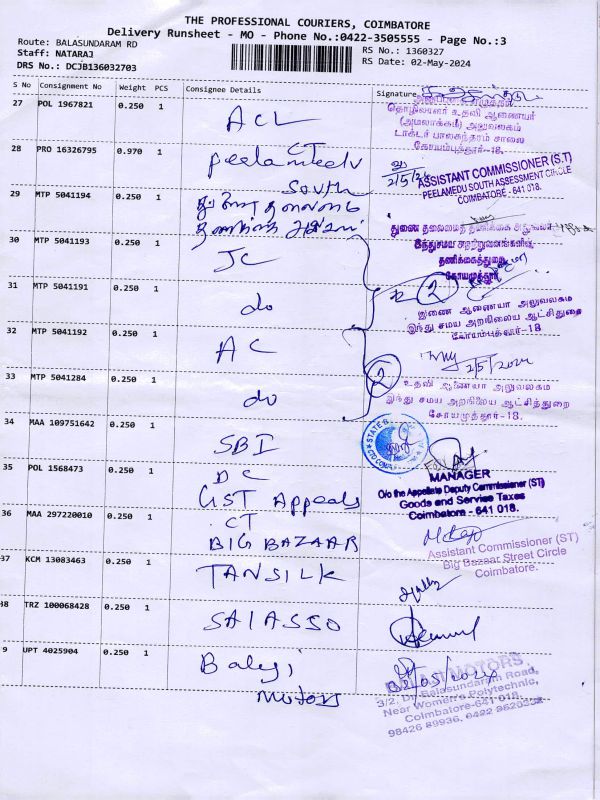 THE PROFESSIONAL COURIERS, COIMBATORE
Delivery Runsheet - MO - Phone No.:0422-3505555 - Page No.:3
Route: BALASUNDARAM RD
RS No.: 1360327
Staff: NATARAJ
RS Date: 02-May-2024
DRS No.: DCJB136032703
S No Consignment No Weight PCS Consignee Details Signature
27 POL 1967821 0.250 1 ACL
தொழிலாளர் உதவி ஆணையர்
(அமலாக்கம்) அலுவலகம்
டாக்டர் பாலசுந்தரம் சாலை
கோயம்புத்தூர்-18.
28 PRO 16326795 0.970 1 CT
Peelamedu
South
2/5/24
ASSISTANT COMMISSIONER (S.T)
PEELAMEDU SOUTH ASSESSMENT CIRCLE
COIMBATORE - 641 018.
29 MTP 5041194 0.250 1
துணை தலைமைத் தணிக்கை அலுவலர்
இந்துசமய அறநிறுவனங்களின்
தணிக்கைத்துறை
கோயமுத்தூர்
30 MTP 5041193 0.250 1 JC
2
31 MTP 5041191 0.250 1 do
இணை ஆணையர் அலுவலகம்
இந்து சமய அறநிலைய ஆட்சித்துறை
கோயம்புத்தூர்-18
32 MTP 5041192 0.250 1 AC
2/5/2024
33 MTP 5041284 0.250 1 do
2
உதவி ஆணையர் அலுவலகம்
இந்து சமய அறநிலைய ஆட்சித்துறை
கோயமுத்தூர்-18.
34 MAA 109751642 0.250 1 SBI
35 POL 1568473 0.250 1 DC
GST Appeals
MANAGER
O/o the Appellate Deputy Commissioner (ST)
Goods and Service Taxes
Coimbatore - 641 018.
36 MAA 297220010 0.250 1 CT
BIG BAZAAR
Assistant Commissioner (ST)
Big Bazaar Street Circle
Coimbatore.
37 KCM 13083463 0.250 1 TANSILK
38 TRZ 100068428 0.250 1 SAIASSO
9 UPT 4025904 0.250 1 Balaji
Motors
MOTORS
3/2, Dr. Balasundaram Road,
Near Women's Polytechnic,
Coimbatore-641 018.
98426 89936, 0422